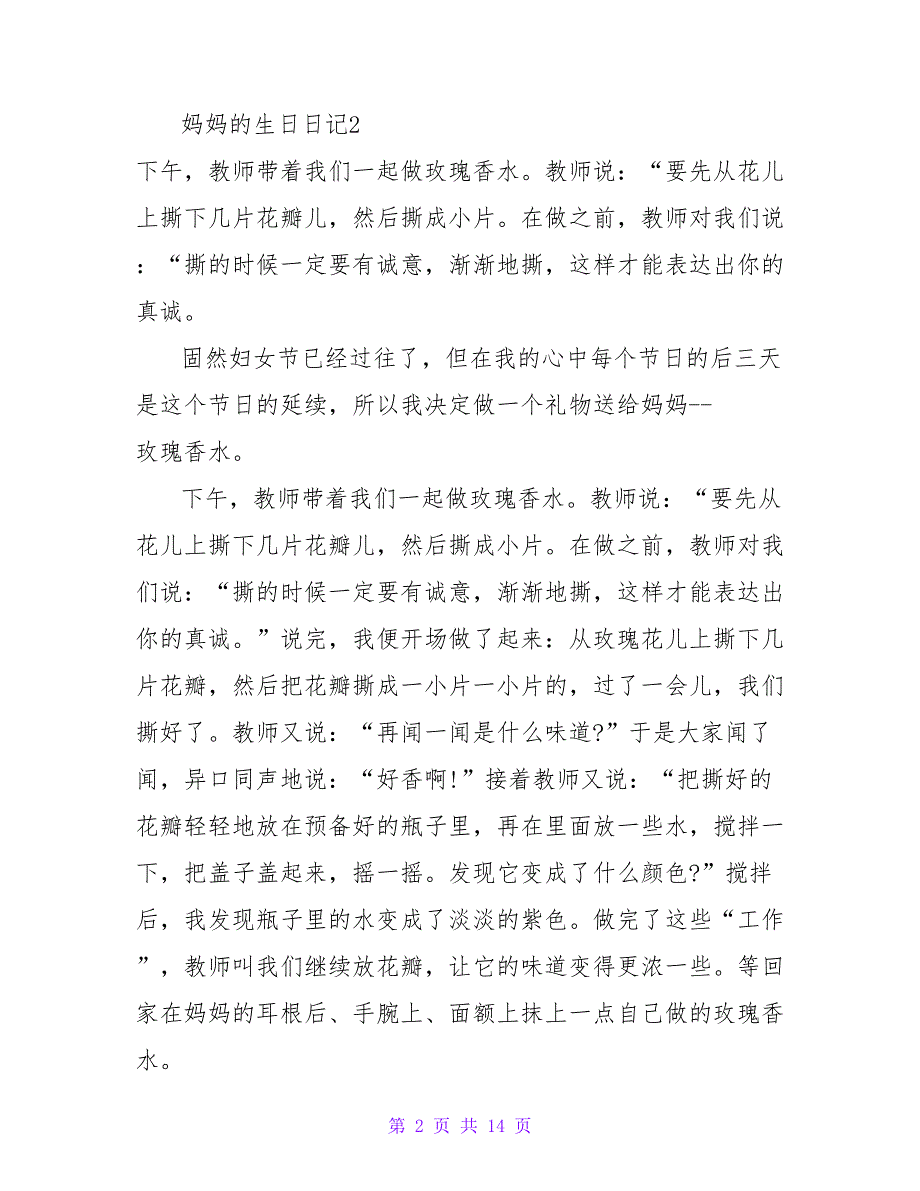 妈妈的生日日记2
下午，教师带着我们一起做玫瑰香水。教师说：“要先从花儿
上撕下几片花瓣儿，然后撕成小片。在做之前，教师对我们说
：“撕的时候一定要有诚意，渐渐地撕，这样才能表达出你的
真诚。
固然妇女节已经过往了，但在我的心中每个节日的后三天
是这个节日的延续，所以我决定做一个礼物送给妈妈--
玫瑰香水。
下午，教师带着我们一起做玫瑰香水。教师说：“要先从
花儿上撕下几片花瓣儿，然后撕成小片。在做之前，教师对我
们说：“撕的时候一定要有诚意，渐渐地撕，这样才能表达出
你的真诚。”说完，我便开场做了起来：从玫瑰花儿上撕下几
片花瓣，然后把花瓣撕成一小片一小片的，过了一会儿，我们
撕好了。教师又说：“再闻一闻是什么味道?”于是大家闻了
闻，异口同声地说：“好香啊!”接着教师又说：“把撕好的
花瓣轻轻地放在预备好的瓶子里，再在里面放一些水，搅拌一
下，把盖子盖起来，摇一摇。发现它变成了什么颜色?”搅拌
后，我发现瓶子里的水变成了淡淡的紫色。做完了这些“工作
”，教师叫我们继续放花瓣，让它的味道变得更浓一些。等回
家在妈妈的耳根后、手腕上、面额上抹上一点自己做的玫瑰香
水。
第 2 页 共 14 页